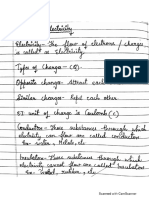 Electricity
Electricity- The flow of electrons / charges
is called as Electricity
Types of Charges - (Q).
Opposite Charges- Attract each
Similar charges- Repel each other.
SI unit of Charge is Coulomb (C)
Conductor- Those substance through which
electricity can flow are called conductors
Ex- water, Metals, etc
Insulator- Those substance through which
electricity cannot flow are called Insulators
Ex- Wood, rubber, etc
Scanned with CamScanner